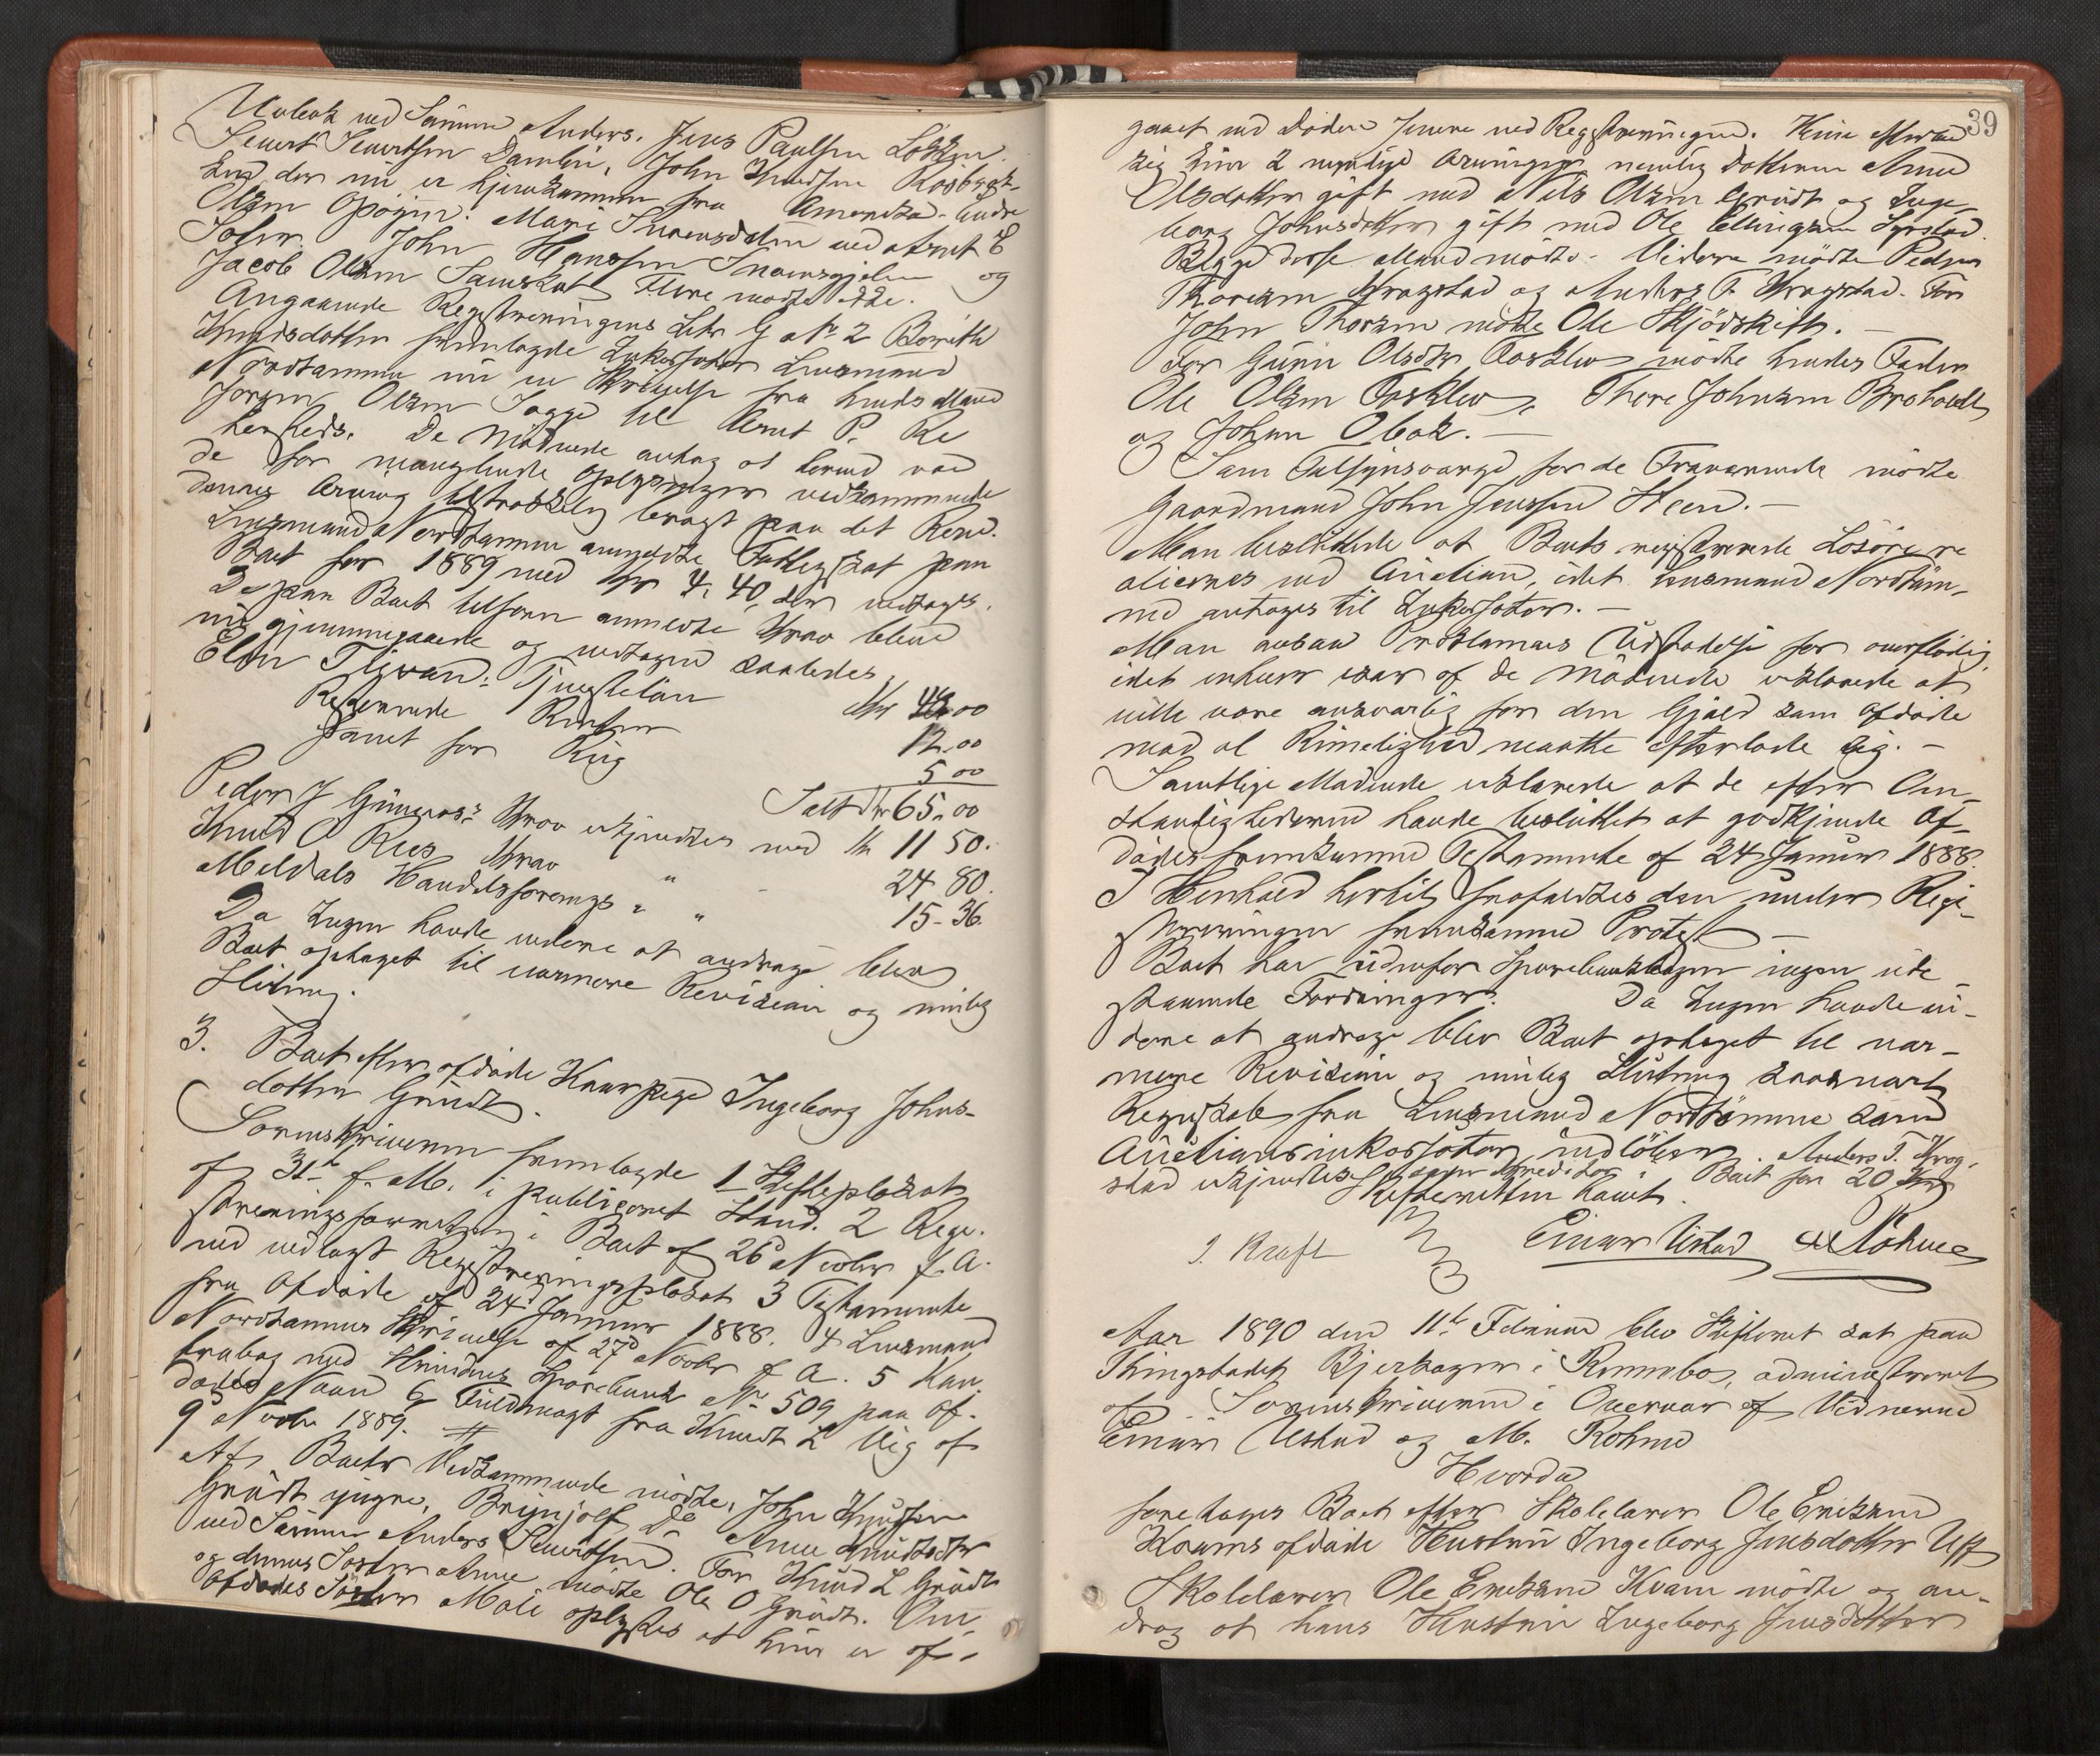 Ulvbak ved Sønnen Anders. Jens Paulsen Løkken.
Sivert Sivertsen Damlin, John Knudsen Rosbygt
Eid, der nu er hjemkommen fra Amerika. Endre
Olsen Opøyen. Mari Simensdatter ved Arnt E
Sølver. John Hansen Snavesgjelen og
Jacob Olsen Sauskat. Flere mødte ikke.
Angaaende Registreringens Litr G No 2 Berith
Knudsdatter fremlagde Inkassator Lensmand
Nordtømme nu en Skrivelse fra hendes Mand
Jørgen Olsen Jagge til Arnt P. Re
hersteds. De Mødende antog at hermed var
de for manglende Oplysninger vedkommende
dennes Arving tilstrækkelig bragt paa det Rene.
Lensmand Nordtømme anmeldte Fattigskat paa
Boet for 1889 med Kr 4,40, der vedtoges.
De paa Boet tilforn anmeldte Krav bleve
nu gjennemgaaede og vedtagne saaledes
Elen Flivan: Tjenesteløn Kr 48.00
Resterende Renter 12.00
Laant for Rug 5.00
Ialt Kr 65.00
Peder J Gunnæs's Krav erkjendtes med Kr 11 50.
Knud O Rees Krav " - 24. 80.
Meldals Handelsforenings " " 15-36.
Da Ingen havde videre at andrage blev
Boet optaget til nærmere Revision og endelig
Slutning.
3. Boet efter afdøde Kaarpige Ingeborg Johns-
datter Grudt.
Sorenskriveren fremlagde 1 Skifteplakat
af 31te f. M. i publiceret Stand. 2 Regi-
streringsforretning i Boet af 26d Novbr f. A.
med vedlagt Registreringsplakat 3 Testamente
fra Afdøde af 24 Januar 1888. 4 Lensmand
Nordtømmes Skrivelse af 27d Novbr f A. 5 Kon
trabog med Strindens Sparebank No 509 paa Af-
dødes Navn 6 Fuldmagt fra Knudt L Vig af
9d Novbr 1889.
Af Boets Vedkommende mødte, John Knudsen
Grudt yngre, Brynjolf do Anne Knudsdtr
ved Sønnen Anders Sivertsen. For Knud L Grudt
og dennes Søster Anne mødte Ole O Grudt. Om
Afdødes Søster Mali oplystes at hun er af-
39
gaaet ved Døden senere end Registreringen. Hun efterlod
sig kun 2 myndige Arvinger nemlig Datteren Anne
Olsdatter gift med Nils Olsen Grudt og Inge
borg Johnsdatter gift med Ole Ellingsen Syrstad.
Begge disse Mænd mødte. Videre mødte Peder
Thoresen Kragstad og Anders T. Kragstad. For
John Thorsen mødte Ole Skjødskift. —
For Guru Olsdtr Aasklev mødte hendes Fader
Ole Olsen Aasklev, Thore Johnsen Broholdt
og Johan Obak. —
Som Tilsynsværge for de Fraværende mødte
Gaardmand John Jenssen Steen. —
Man besluttede at Boets registrerede Løsøre re
aliseres ved Auction, idet Lensmand Nordtøm-
me antoges til Inkassator. —
Man ansaa Proklamas Udstedelse for overflødig,
idet enhver især af de Mødende erklærede at
ville være ansvarlig for den Gjæld som Afdøde
mod al Rimelighed maatte efterlade sig. —
Samtlige Mødende erklærede at de efter Om-
stændighederne havde besluttet at godkjende Af-
dødes fremkomne Testamente af 24 Januar 1888.
I Henhold hertil frafaldtes den under Regi-
streringen fremkomne Protest —
Boet har udenfor Sparebankbogen ingen ude
staaende Fordringer. Da Ingen havde vi-
dere at andrage blev Boet optaget til nær-
mere Revision og endelig Slutning saasnart
Regnskab fra Lensmand Nordtømme som
Auctionsinkassator indløber. Anders T. Krag-
stad erkjendtes som Kreditor i Boet for 20 Kr
Skifteretten hævet.
J. Kraft Einar Ustad M Rohme
Aar 1890 den 11te Februar blev Skifteret sat paa
Thingstedet Bjerkager i Rennebo, administreret
af Sorenskriveren i Overvær af Vidnerne
Einar Ustad og M. Rohme
Hvorda
foretoges Boet efter Skolelærer Ole Eriksen
Kvams afdøde Hustru Ingeborg Jensdatter Uf
Skolelærer Ole Eriksen Kvam mødte og an-
drog at hans Hustru Ingeborg Jensdatter